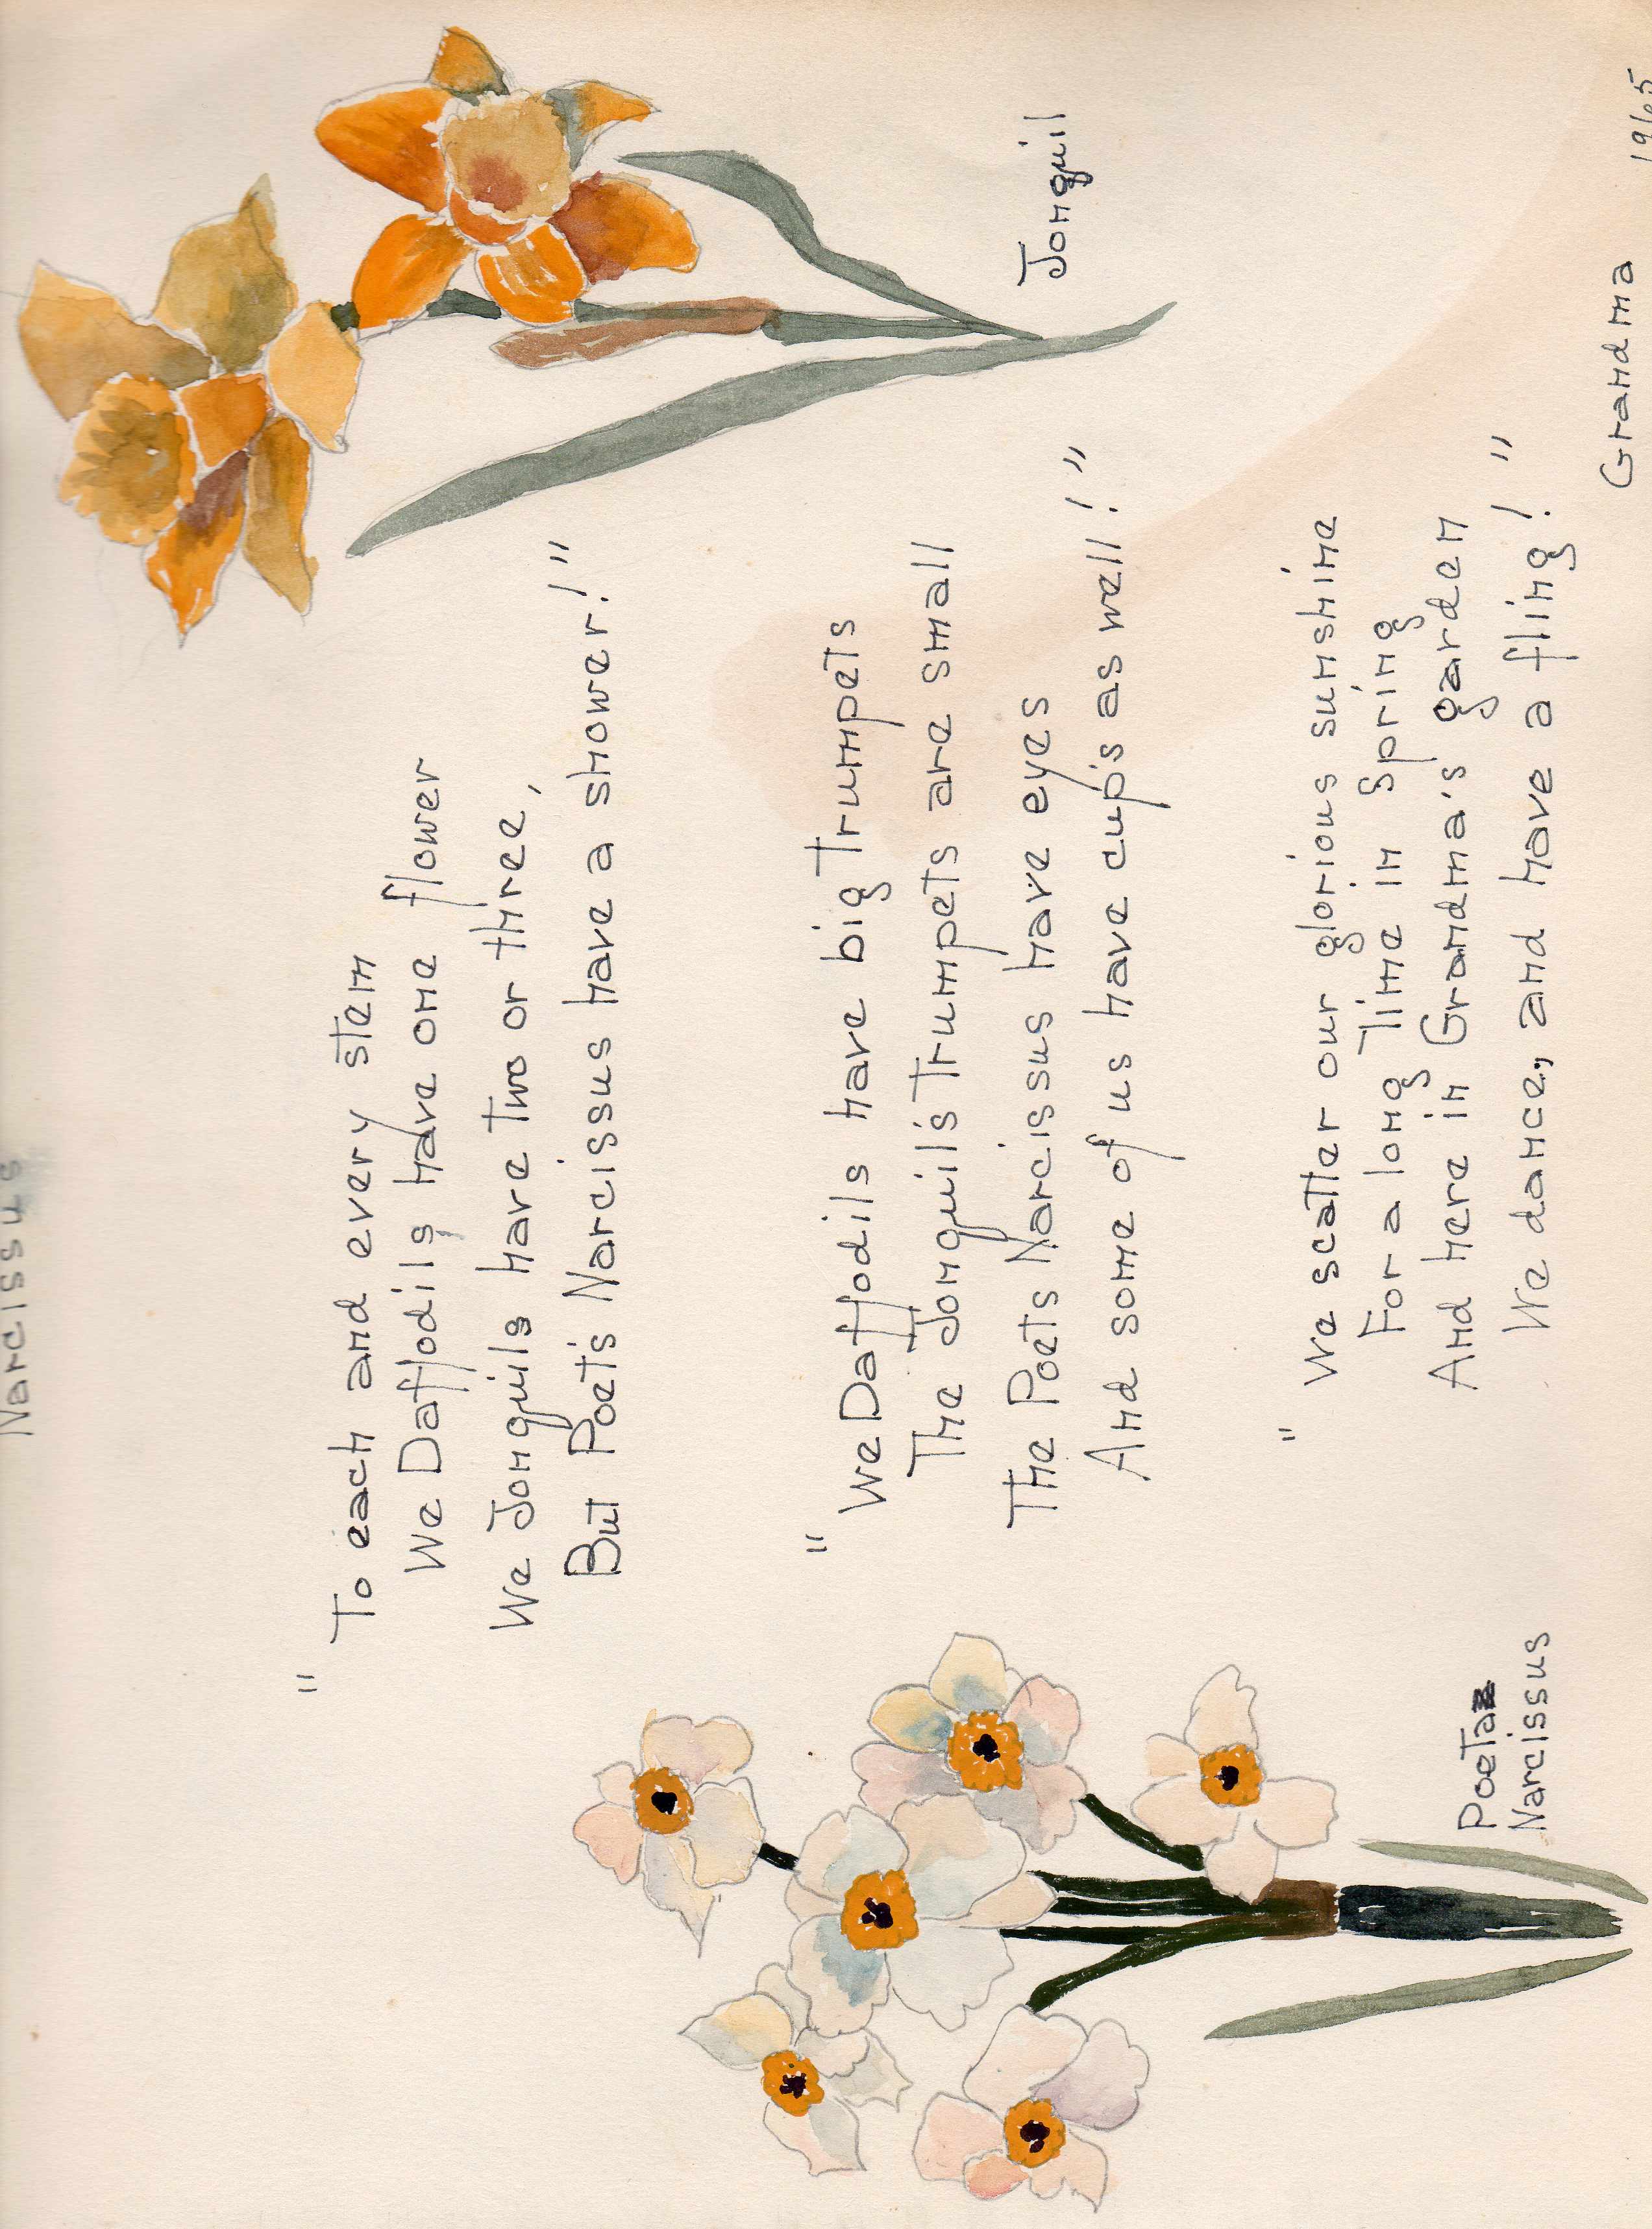 Narcissus
" To each and every stem
We Daffodils have one flower
We Jonquils have two or three,
But Poet's Narcissus have a shower!"
" We Daffodils have big Trumpets
The Jonquil's Trumpets are small
The Poets Narcissus have eyes
And some of us have cup's as well!"
Jonquil
" We scatter our glorious sunshine
For a long Time in Spring
And here in Grandma's garden
We dance, and have a fling!"
Poeta
Narcissus
Grandma 1965